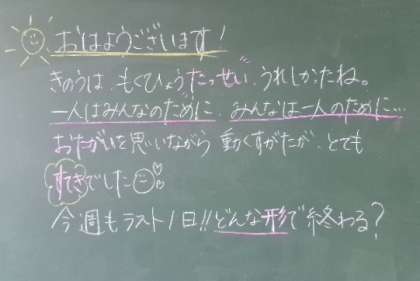 おはようございます!
きのうは、もくひょうたっせい、うれしかたね。
一人はみんなのために、みんなは一人のために…
おたがいを思いながら動くすがたが、とても
すてきでした
今週もラスト1日!!どんな形で終わる?